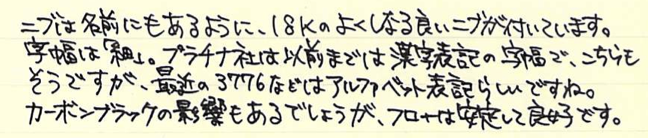 ニブは名前にもあるように、18Kのよくしなる良いニブが付いています。
字幅は「細」。プラチナ社は以前までは漢字表記の字幅で、こちらも
そうですが、最近の3776などはアルファベット表記らしいですね。
カーボンブラックの影響もあるでしょうが、フローは安定して良好です。